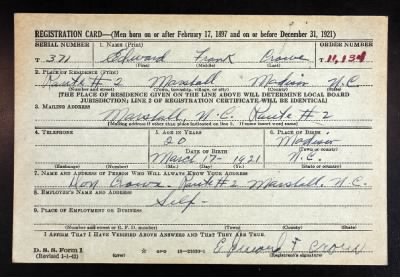 REGISTRATION CARD—(Men born on or after February 17, 1897 and on or before December 31, 1921)
SERIAL NUMBER 1. NAME (Print) ORDER NUMBER
T 371 Edward Frank Crowe T 11,134
(First) (Middle) (Last)
2. PLACE OF RESIDENCE (Print)
Route # 2 Marshall Madison N.C.
(Number and street) (Town, township, village, or city) (County) (State)
[THE PLACE OF RESIDENCE GIVEN ON THE LINE ABOVE WILL DETERMINE LOCAL BOARD
JURISDICTION; LINE 2 OF REGISTRATION CERTIFICATE WILL BE IDENTICAL]
3. MAILING ADDRESS
Marshall, N.C. Route # 2
[Mailing address if other than place indicated on line 2. If same insert word same]
4. TELEPHONE 5. AGE IN YEARS 6. PLACE OF BIRTH
20 Madison
DATE OF BIRTH (Town or county)
March 17- 1921 N.C.
(Exchange) (Number) (Mo.) (Day) (Yr.) (State or country)
7. NAME AND ADDRESS OF PERSON WHO WILL ALWAYS KNOW YOUR ADDRESS
Crowe Route # 2 Marshall, N.C.
8. EMPLOYER'S NAME AND ADDRESS
Self-
9. PLACE OF EMPLOYMENT OR BUSINESS
(Number and street or R. F. D. number) (Town) (County) (State)
I AFFIRM THAT I HAVE VERIFIED ABOVE ANSWERS AND THAT THEY ARE TRUE.
D. S. S. Form 1 Edward F Crowe
(Revised 1-1-42) (over) GPO (Registrant's signature)